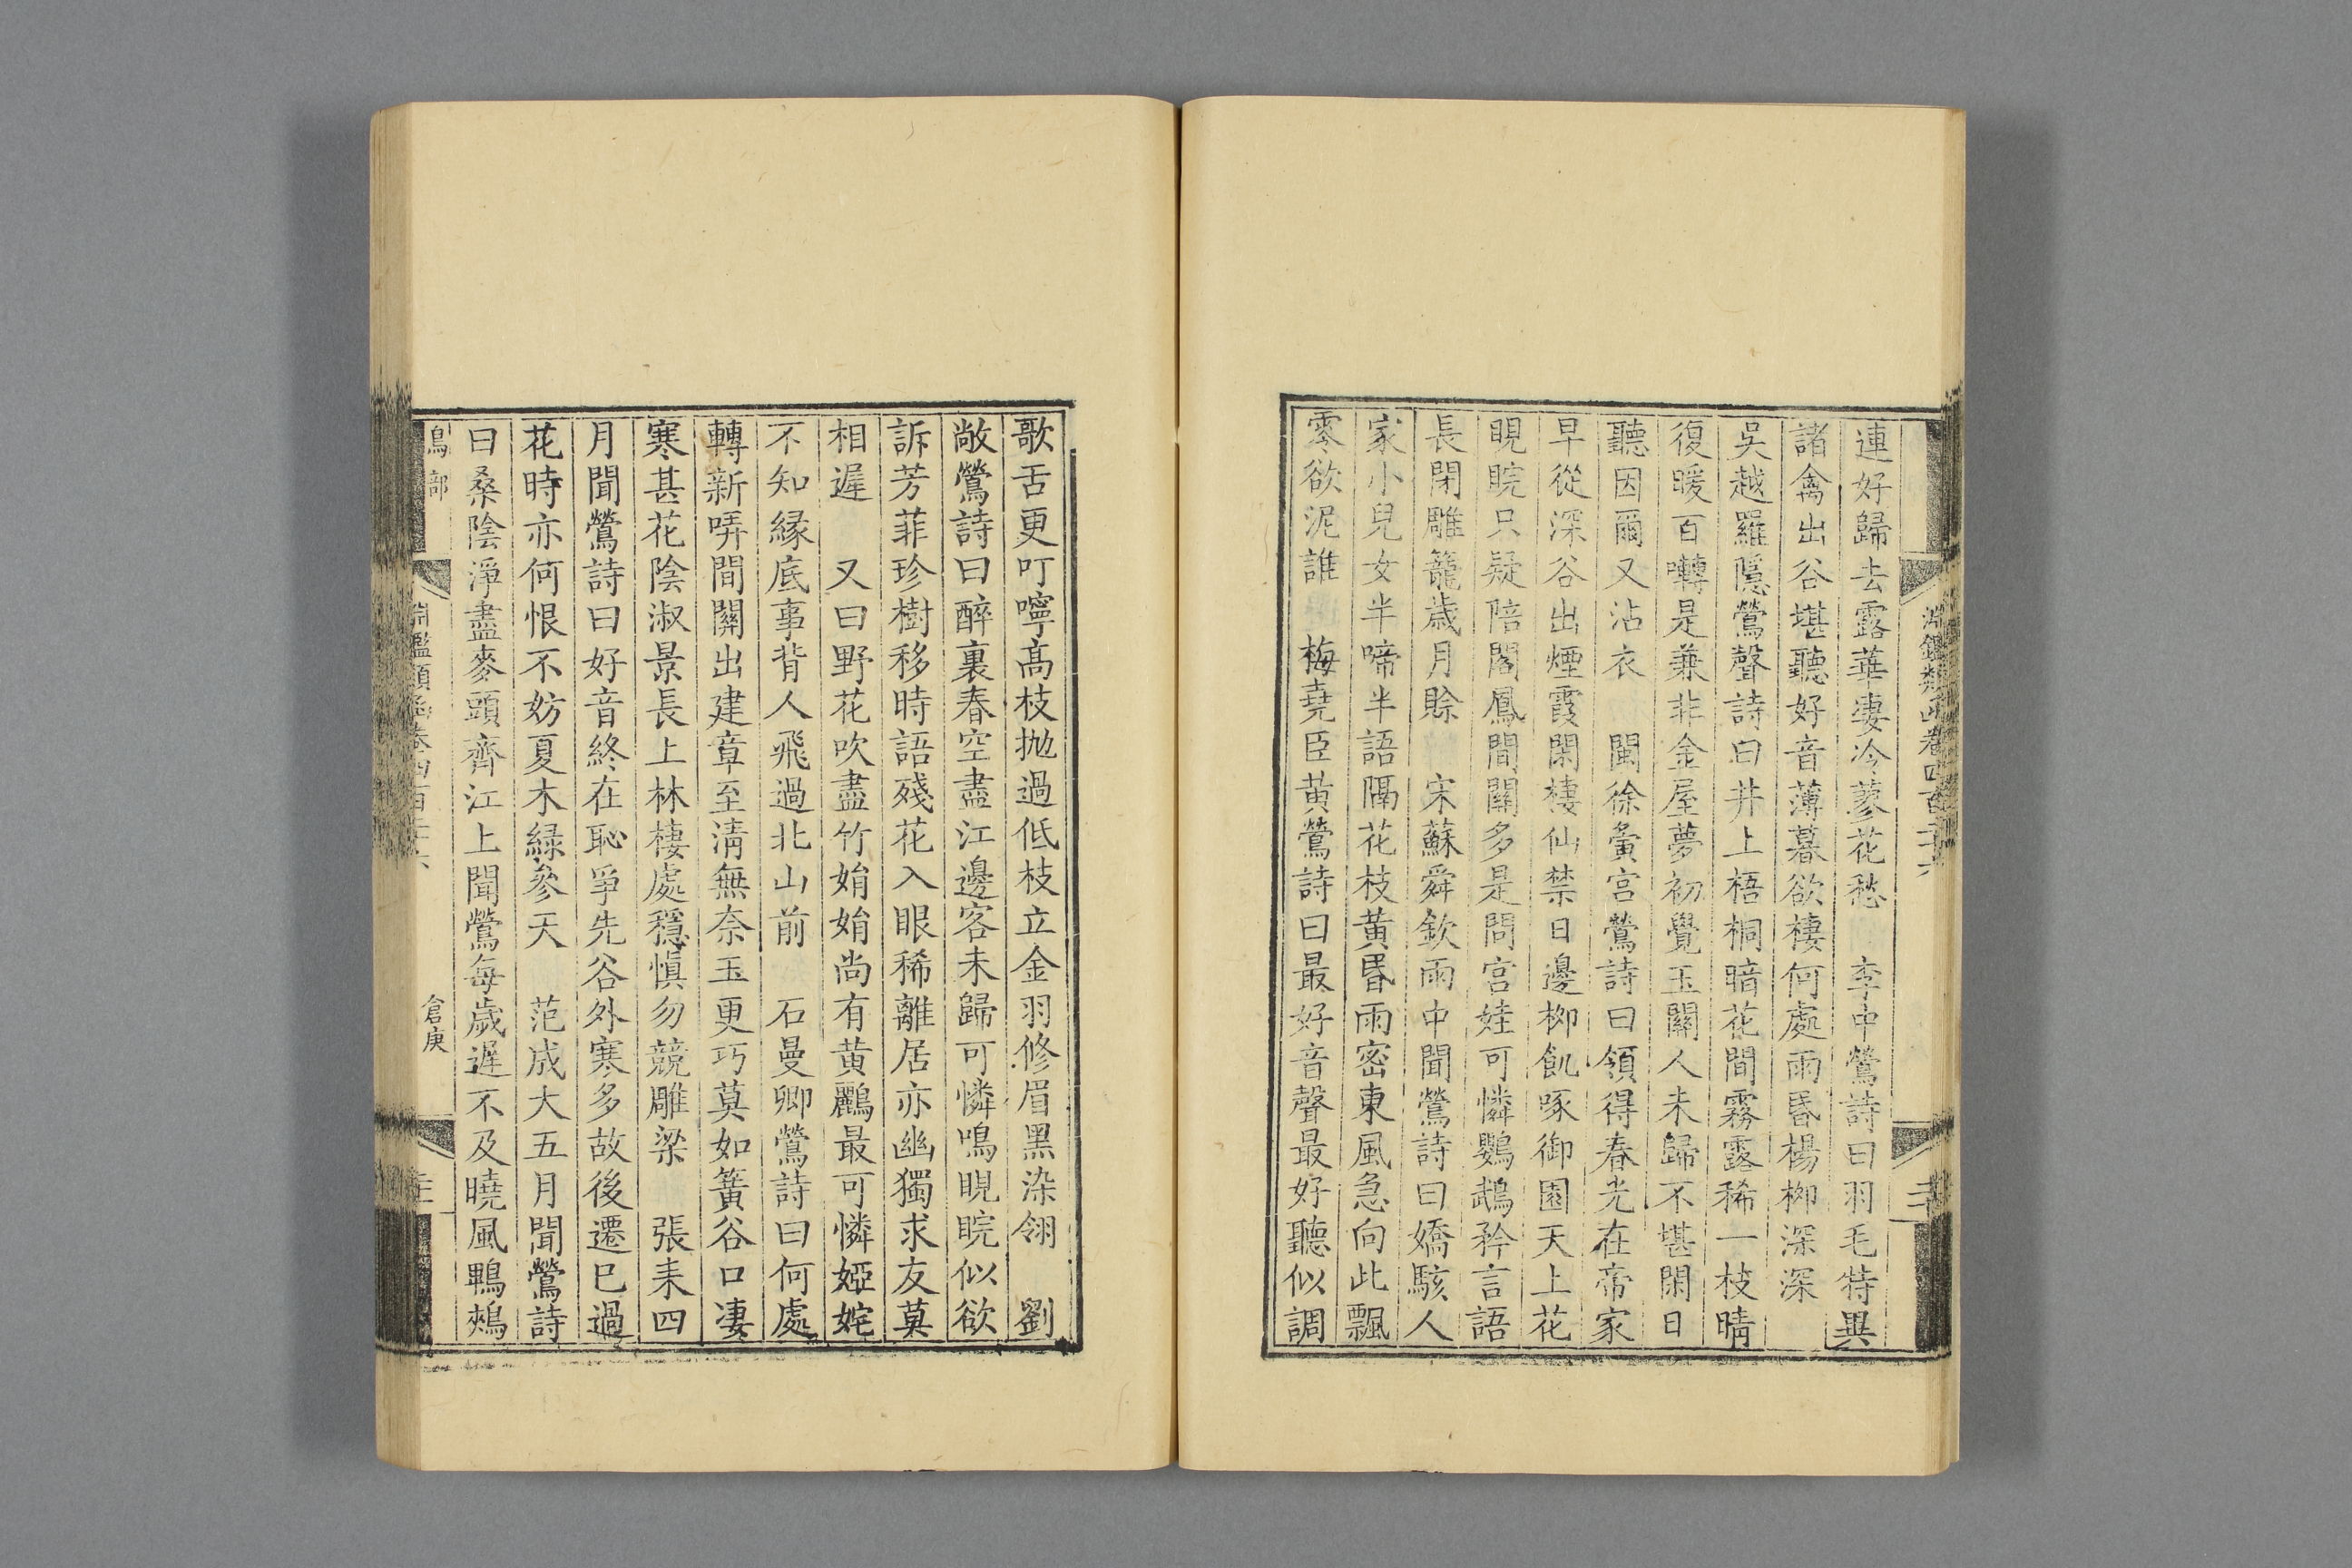 淵鑑類函卷四百二十六
連好歸去露華凄冷蓼花愁 李中鶯詩曰羽毛特異
諸禽出谷堪聽好音薄暮欲棲何處雨昏楊柳深深
吳越羅隱鶯聲詩曰井上梧桐暗花間霧露稀一枝晴
復暖百囀是兼非金屋夢初覺玉關人未歸不堪閑日
聽因爾又沾衣 閩徐夤宮鶯詩曰領得春光在帝家
早從深谷出煙霞閑棲仙禁日邊柳飢啄御園天上花
睍睆只疑陪閣鳳間關多是問宮娃可憐鸚鵡矜言語
長閉雕籠歲月賒 宋蘇舜欽雨中聞鶯詩曰嬌騃人
家小兒女半啼半語隔花枝黃昏雨密東風急向此飄
零欲泥誰 梅堯臣黃鶯詩曰最好音聲最好聽似調
歌舌更叮嚀高枝抛過低枝立金羽修眉黑染翎 劉
敞鶯詩曰醉裏春空盡江邊客未歸可憐鳴睍睆似欲
訴芳菲珍樹移時語殘花入眼稀離居亦幽獨求友莫
相遲 又曰野花吹盡竹娟娟尚有黃鸝最可憐婭姹
不知緣底事背人飛過北山前 石曼卿鶯詩曰何處
轉新哢間關出建章至清無奈玉更巧莫如簧谷口凄
寒甚花陰淑景長上林棲處穩慎勿競雕梁 張耒四
月聞鶯詩曰好音終在恥爭先谷外寒多故後遷巳過
花時亦何恨不妨夏木綠參天 范成大五月聞鶯詩
曰桑陰淨盡麥頭齊江上聞鶯每歲遲不及曉風鵯鵊
鳥部 淵鑑類函卷四百二十六 倉庚